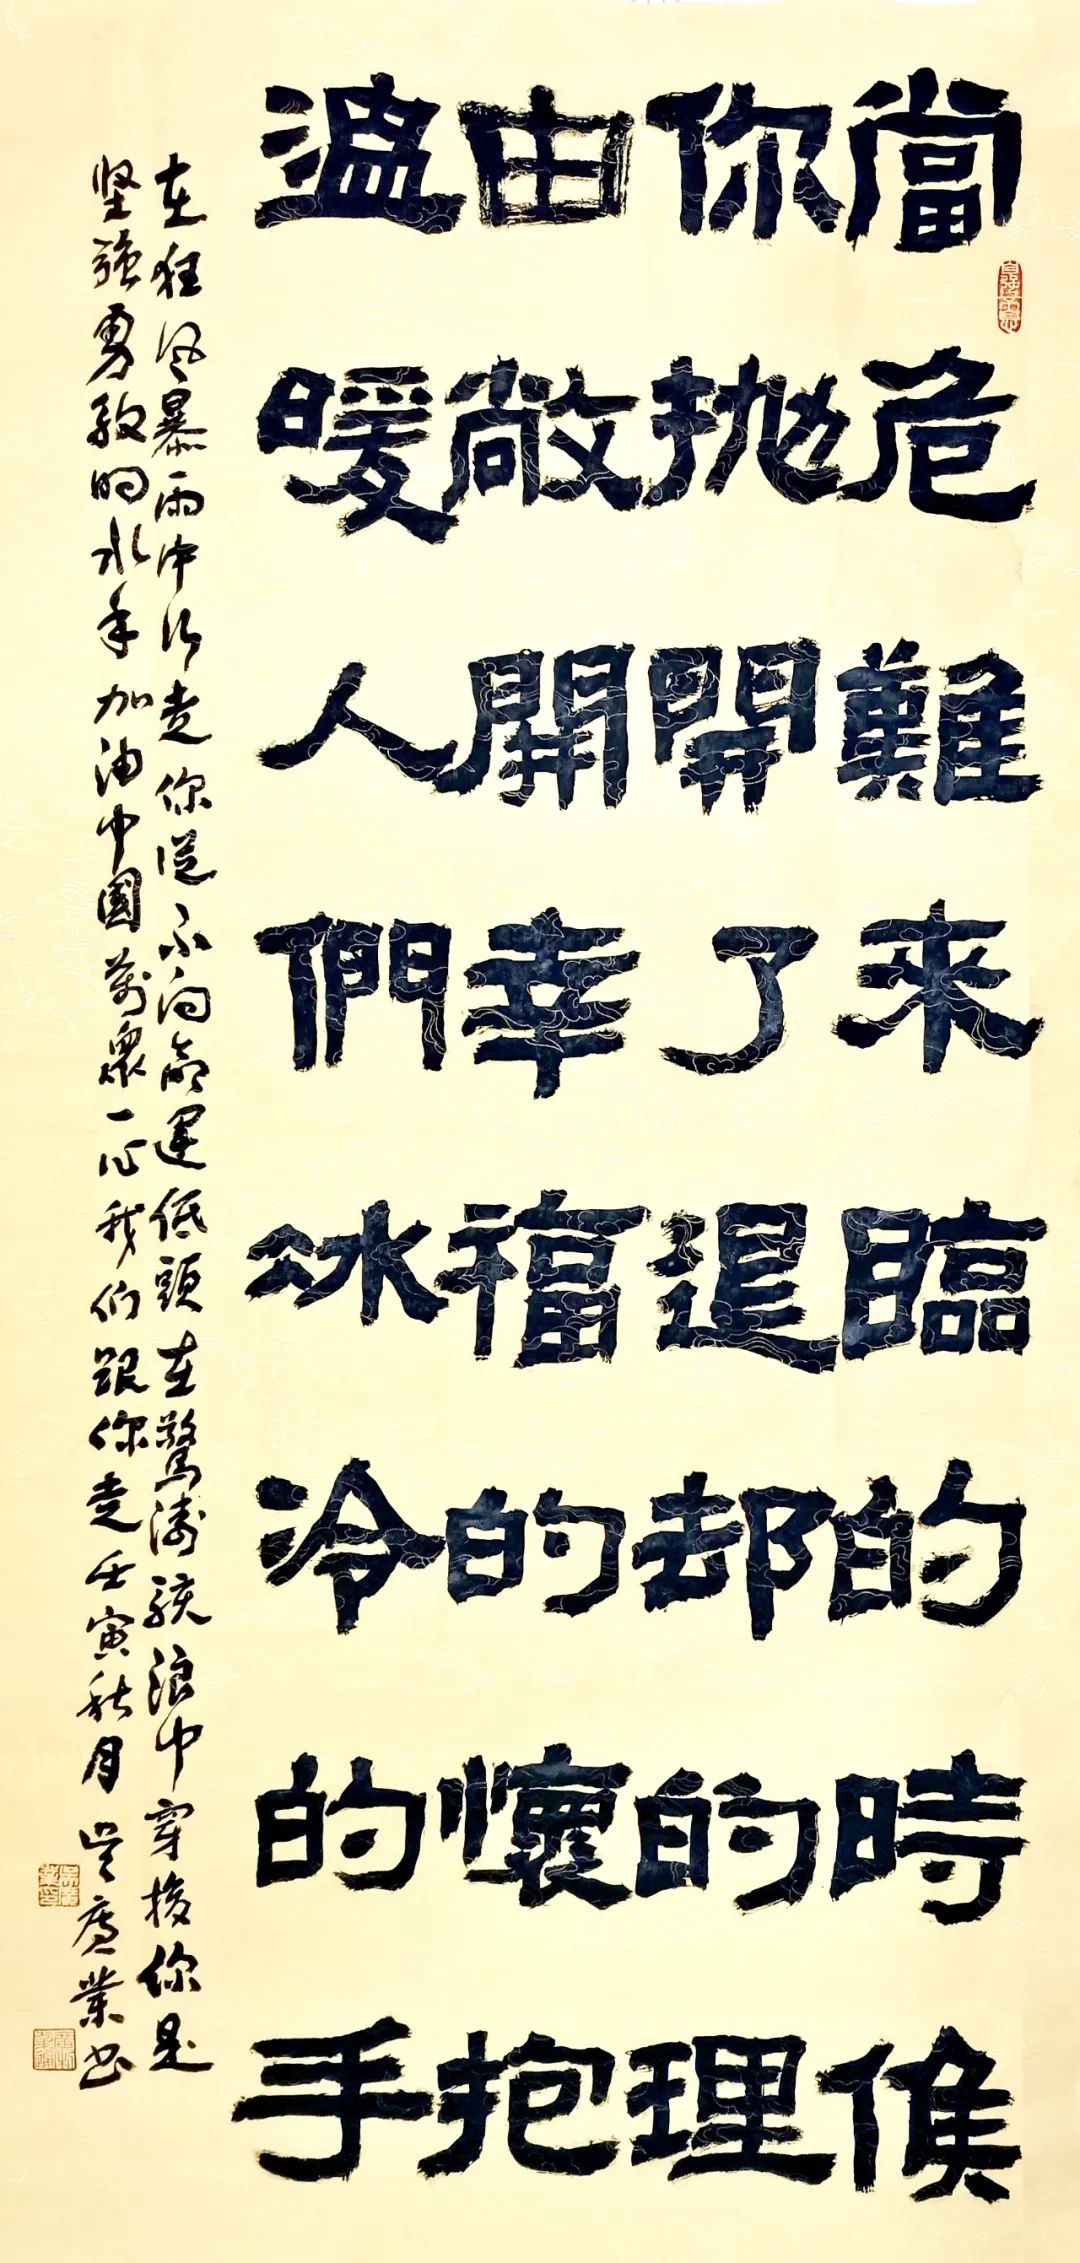 當危難來臨的時候
你抛開了退却的理
由敞開幸福的懷抱
温暖人們冰冷的手
在狂风暴雨中行走你從不向命運低頭在驚濤骇浪中穿梭你是
坚強勇敢的水手加油中國萬衆一心我们跟你走壬寅秋月吴廣業书